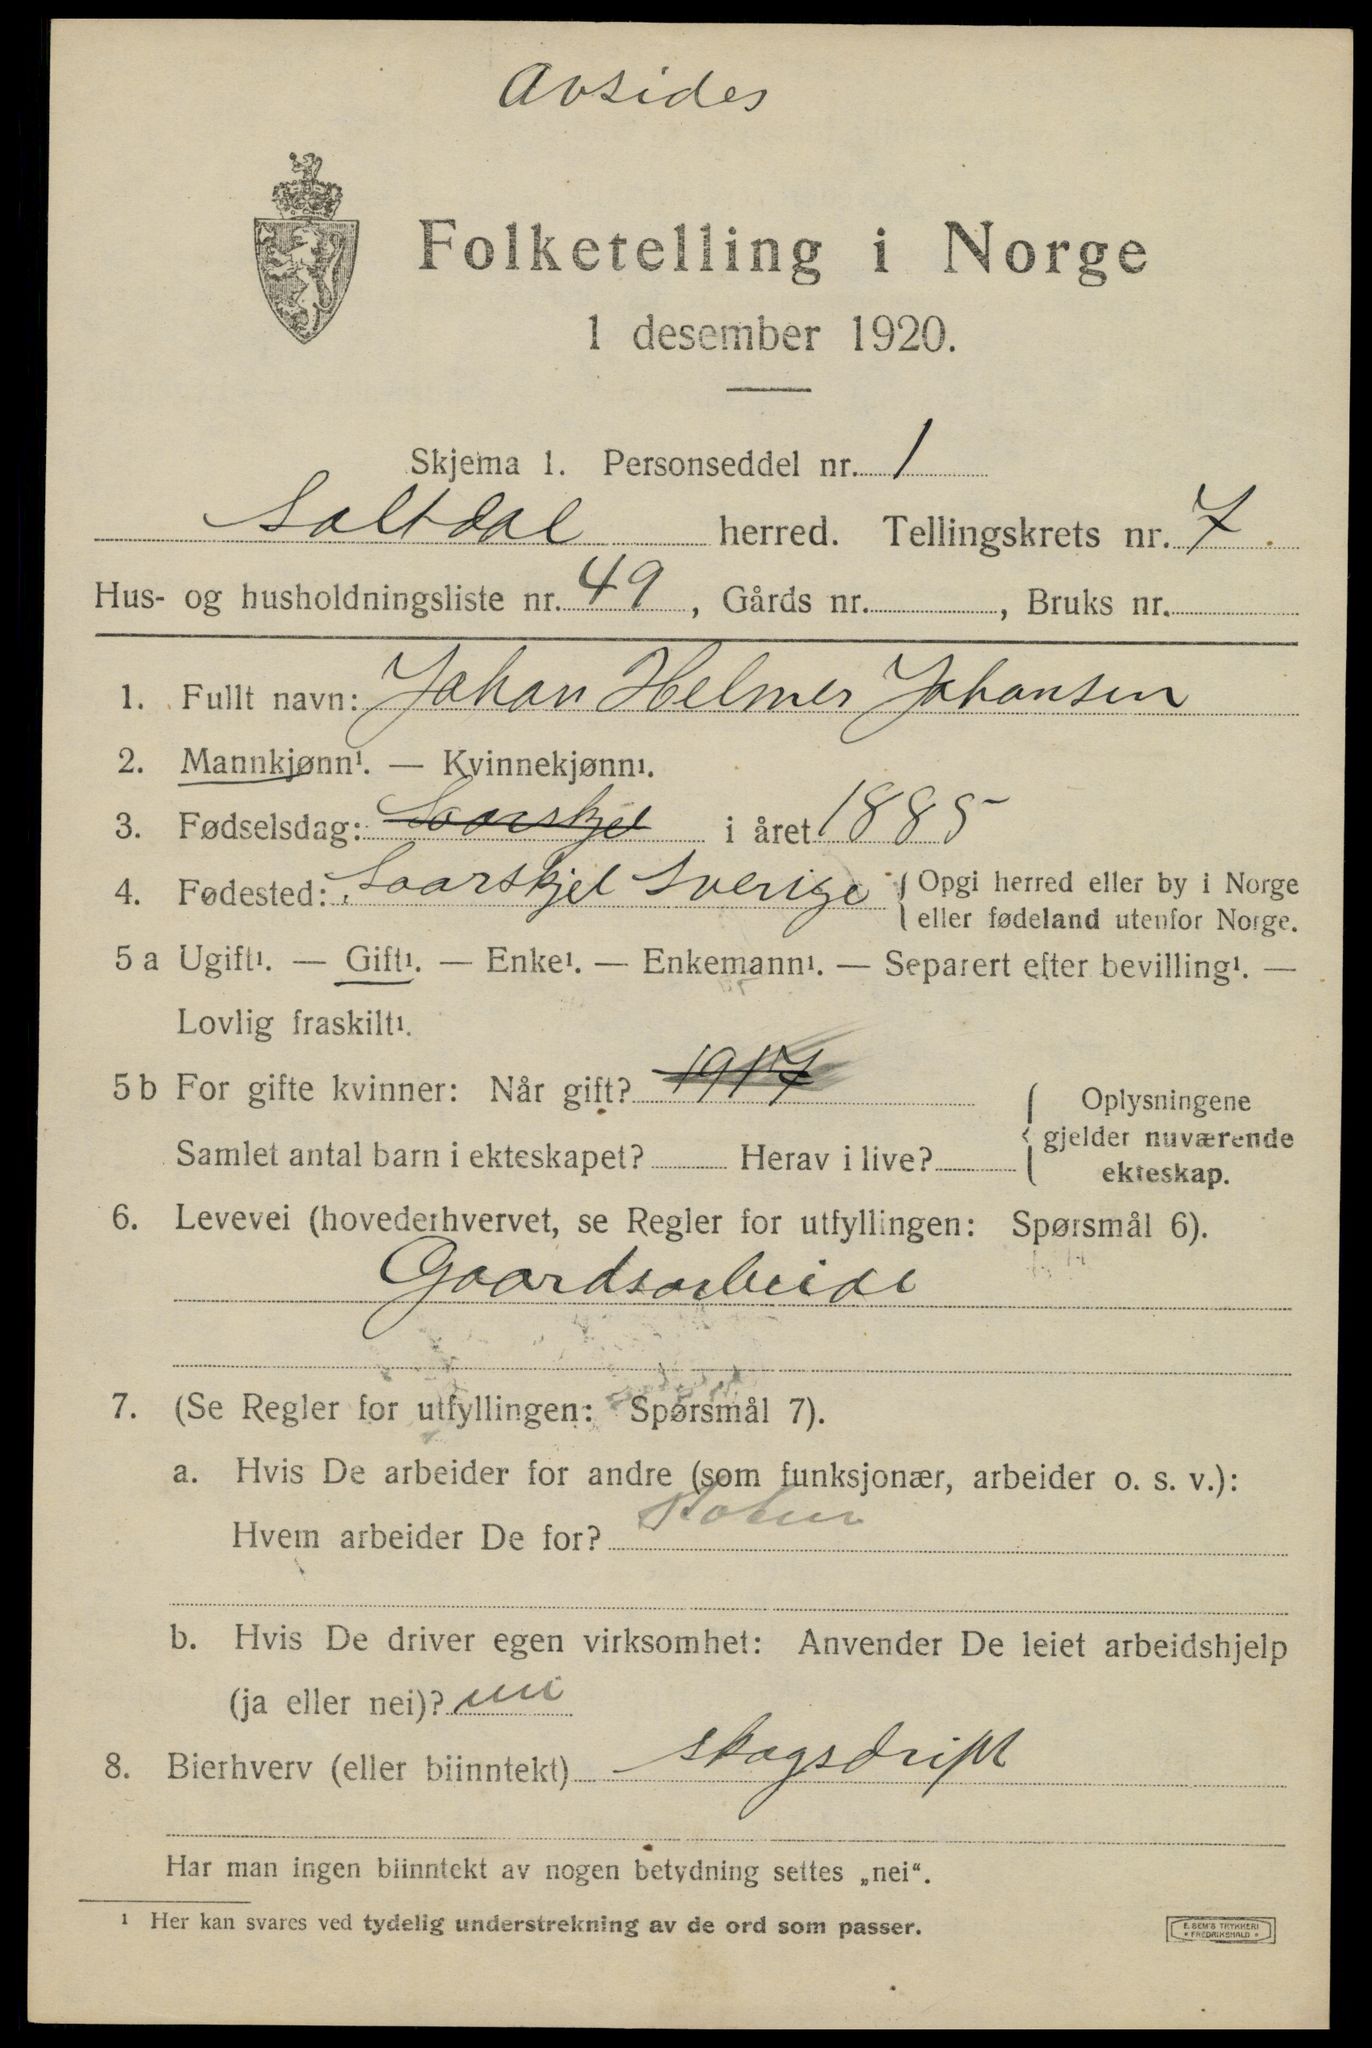 Avsides
Folketelling i Norge
1 desember 1920.
Skjema 1. Personseddel nr. 1
Saltdal herred. Tellingskrets nr. 7.
Hus- og husholdningsliste nr. 49, Gårds nr. , Bruks nr.
1. Fullt navn: Johan Helmer Johansen
2. Mannkjønn¹. — Kvinnekjønn¹.
3. Fødselsdag: Soarskjel i året 1885
4. Fødested: Soarskjel Sverige { Opgi herred eller by i Norge
eller fødeland utenfor Norge.
5 a Ugift¹. — Gift¹. — Enke¹. — Enkemann¹. — Separert efter bevilling¹. —
Lovlig fraskilt¹.
5 b For gifte kvinner: Når gift? 1917
Samlet antal barn i ekteskapet? Herav i live?
{ Oplysningene
gjelder nuværende
ekteskap.
6. Levevei (hovederhvervet, se Regler for utfyllingen: Spørsmål 6).
Gaardsarbeide
7. (Se Regler for utfyllingen: Spørsmål 7).
a. Hvis De arbeider for andre (som funksjonær, arbeider o. s. v.):
Hvem arbeider De for?
b. Hvis De driver egen virksomhet: Anvender De leiet arbeidshjelp
(ja eller nei)? nei
8. Bierhverv (eller biinntekt) skogsdrift
Har man ingen biinntekt av nogen betydning settes „nei“.
¹ Her kan svares ved tydelig understrekning av de ord som passer.
E. SEM'S TRYKKERI
* FREDRIKSHALD *